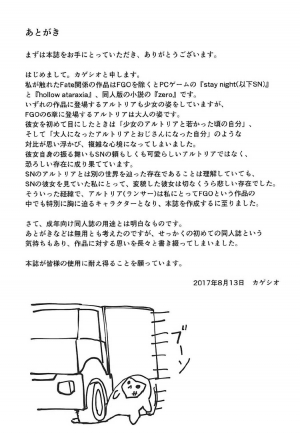 あとがき
まずは本誌をお手にとっていただき、ありがとうございます。
はじめまして。カゲシオと申します。
私が触れたFate関係の作品はFGOを除くとPCゲームの『stay night(以下SN)』
と『hollow ataraxia』、同人版の小説の『zero』です。
いずれの作品に登場するアルトリアも少女の姿をしていますが、
FGOの6章に登場するアルトリアは大人の姿です。
彼女を初めて目にしたときは「少女のアルトリアと若かった頃の自分」、
そして「大人になったアルトリアとおじさんになった自分」のような
対比が思い浮かび、複雑な心境になってしまいました。
彼女自身の振る舞いもSNの頼もしくも可愛らしいアルトリアではなく、
恐ろしい存在に成り果てています。
SNのアルトリアとは別の世界を辿った存在であることは理解していても、
SNの彼女を見ていた私にとって、変貌した彼女は切なくうら悲しい存在でした。
そういった経緯で、アルトリア(ランサー)は私にとってFGOという作品の
中でも特別に胸に迫るキャラクターとなり、本誌を作成するに至りました。
さて、成年向け同人誌の用途とは明白なものです。
あとがきなどは無用とも考えたのですが、せっかくの初めての同人誌という
気持ちもあり、作品に対する思いを長々と書き綴ってしまいました。
本誌が皆様の使用に耐え得ることを願っています。
2017年8月13日 カゲシオ
ブーン